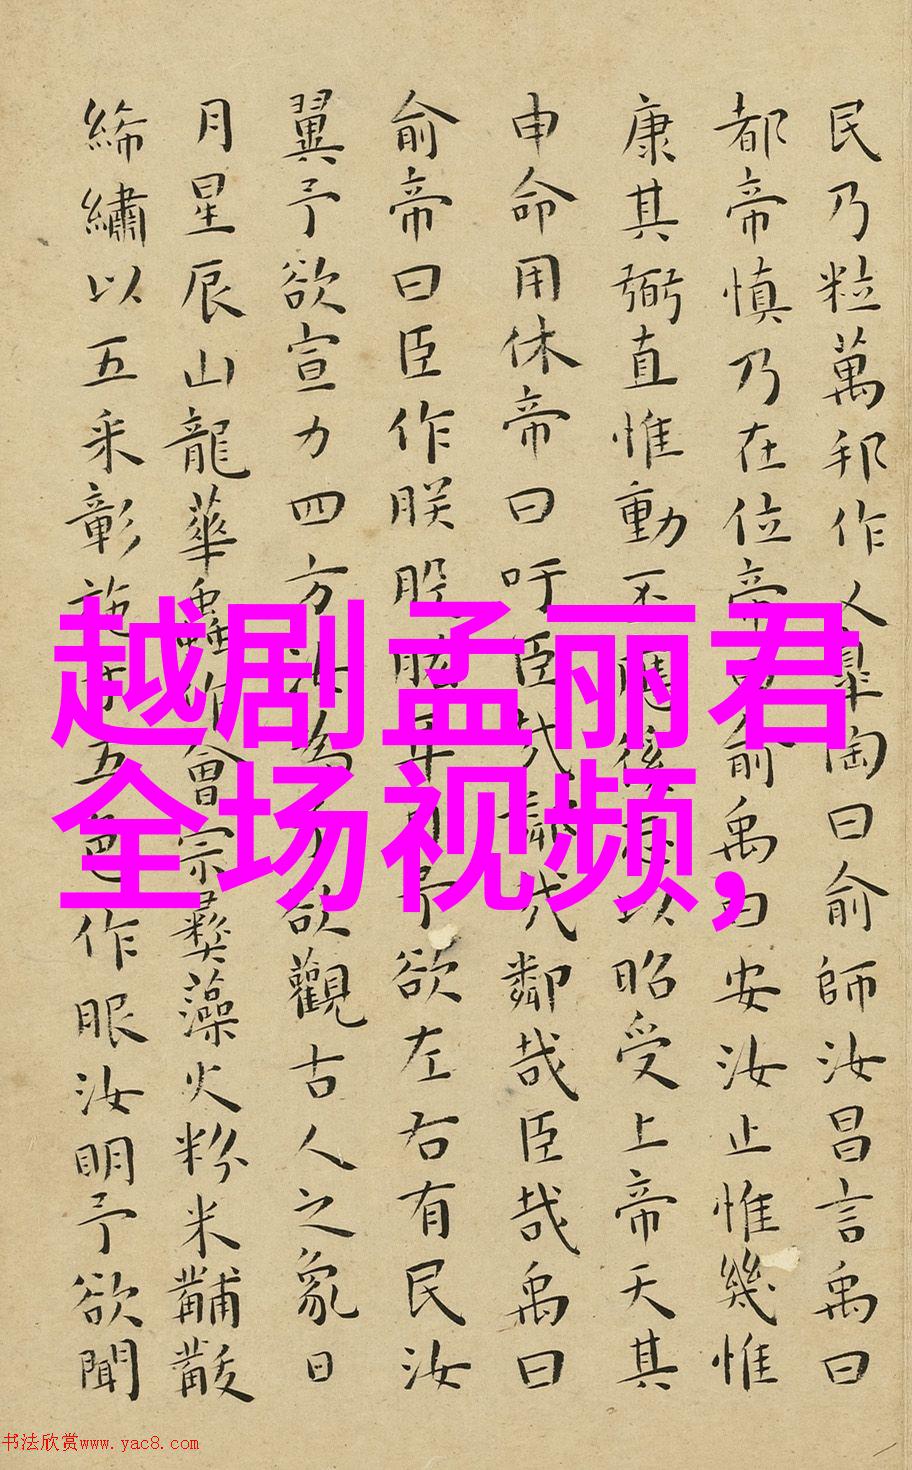 民乃粒萬邦作乂皐陶曰俞師汝昌言禹曰
都帝慎乃在位帝曰俞禹曰安汝止惟幾惟
康其弼直惟動丕應徯志以昭受上帝天其
申命用休帝曰吁臣哉鄰哉鄰哉臣哉禹曰
俞帝曰臣作朕股肱耳目予欲左右有民汝
翼予欲宣力四方汝為予欲觀古人之象日
月星辰山龍華蟲作會宗彝藻火粉米黼黻
絺繡以五采彰施于五色作服汝明予欲聞
越剧孟丽君
全场视频,
书法欣赏www.yac8.com